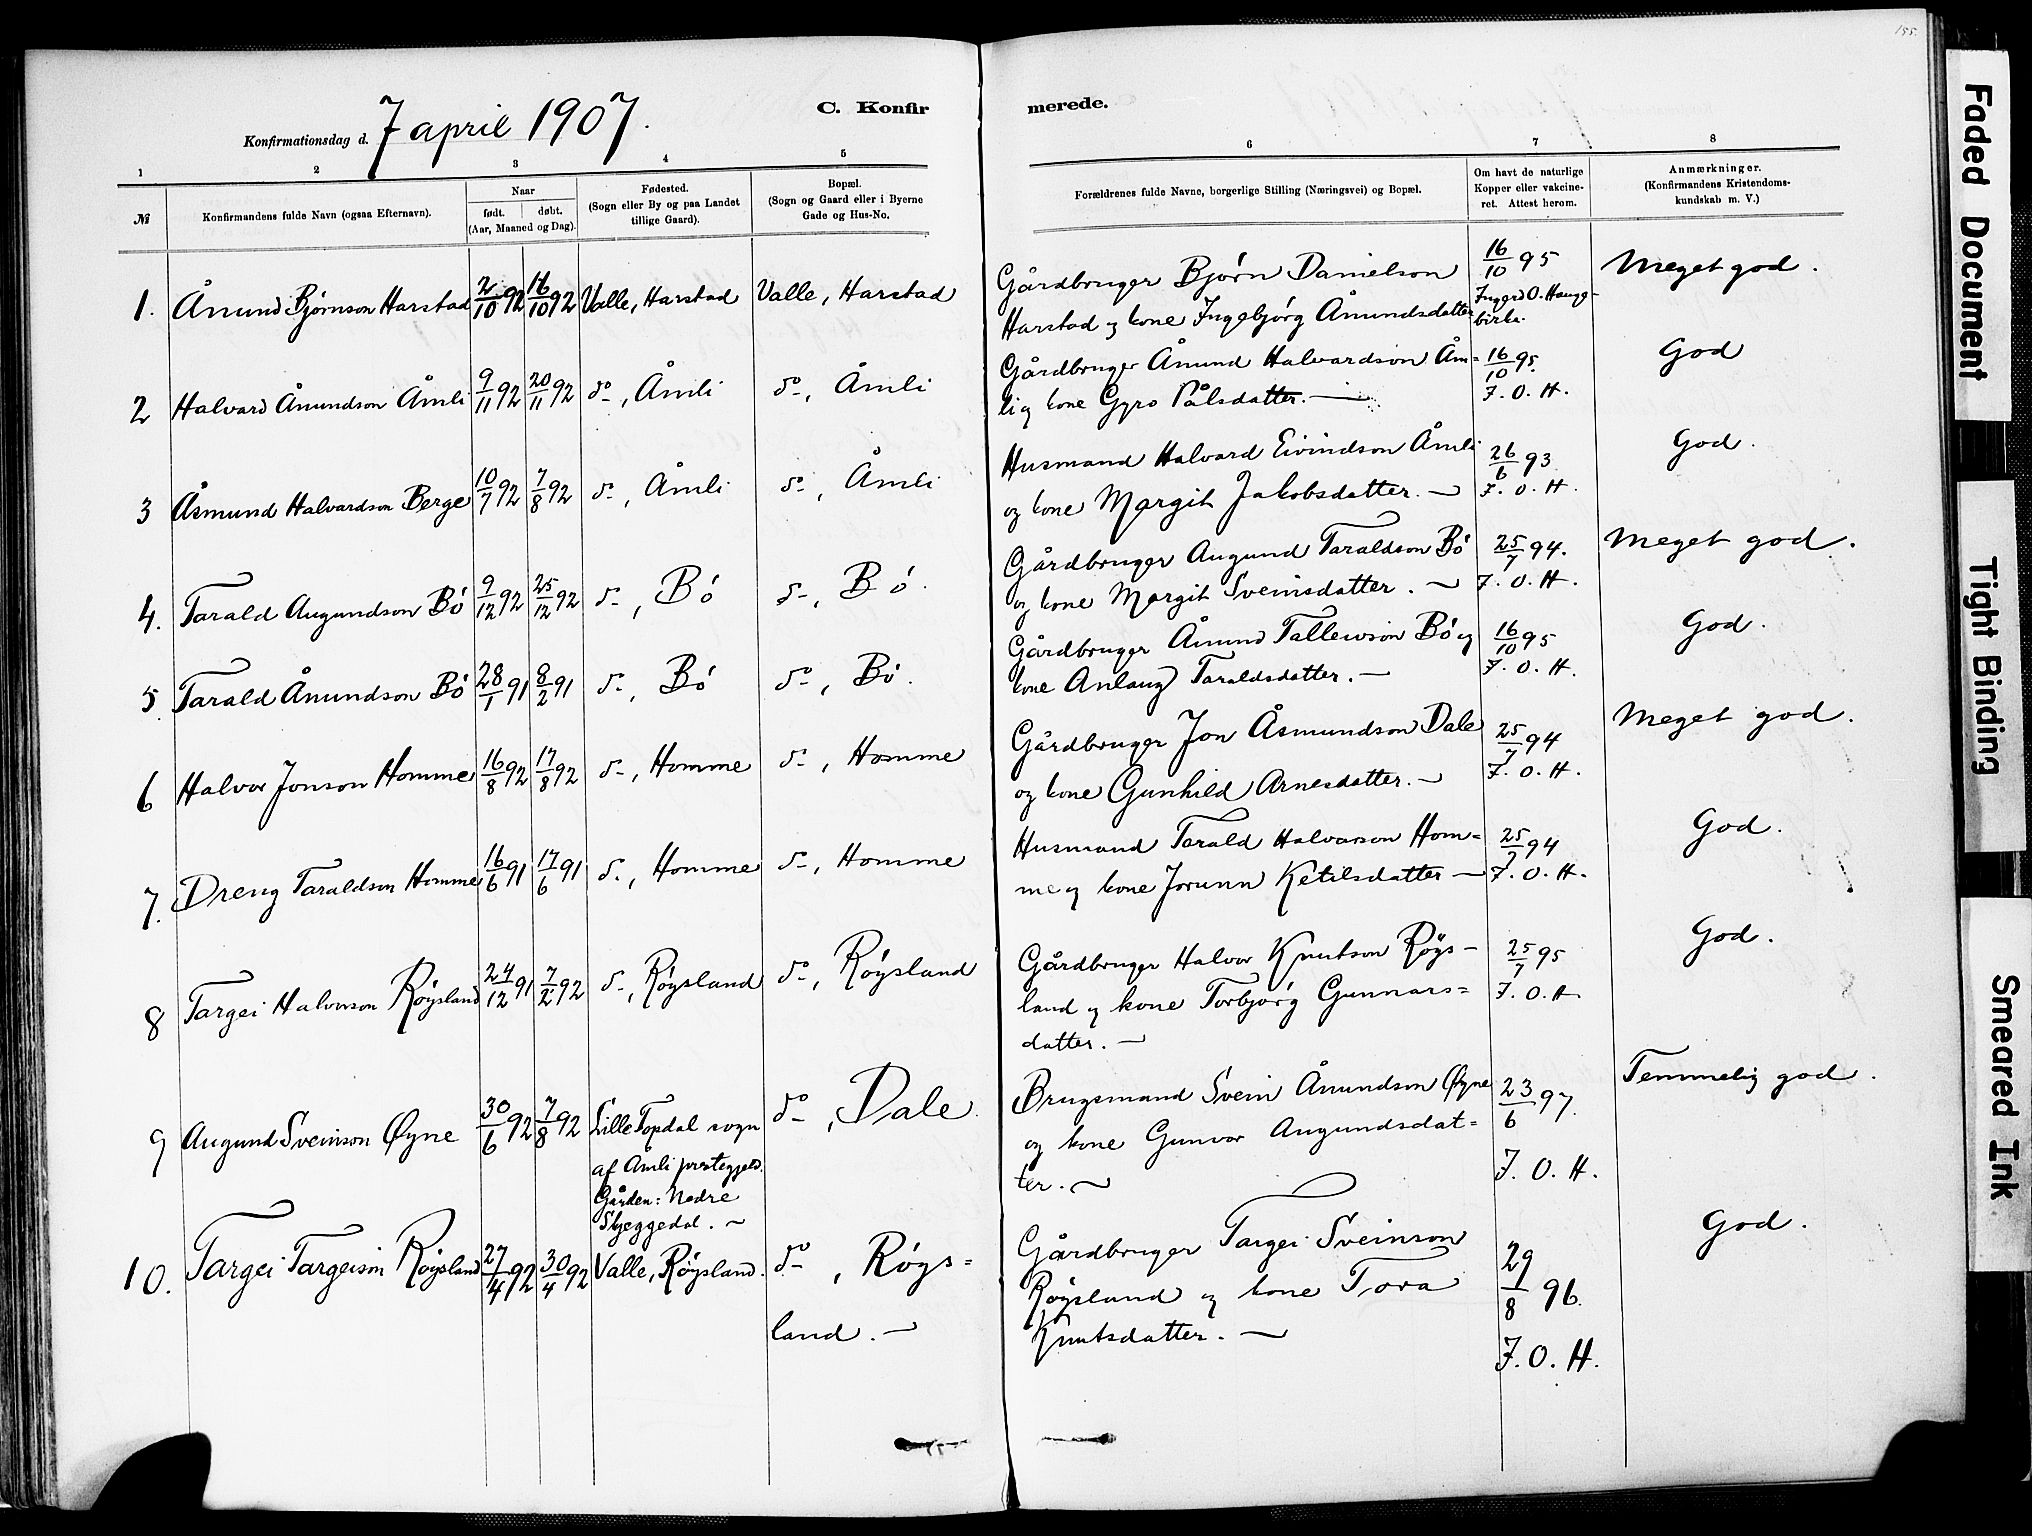 155.
Konfirmationsdag d. 7 april 1907.
C. Konfirmerede.
1 2 3 4 5 6 7 8
№
Konfirmandens fulde Navn (ogsaa Efternavn).
Naar
født. døbt.
(Aar, Maaned og Dag).
Fødested.
(Sogn eller By og paa Landet
tillige Gaard).
Bopæl.
(Sogn og Gaard eller i Byerne
Gade og Hus-No.
Forældrenes fulde Navne, borgerlige Stilling (Næringsvei) og Bopæl.
Om havt de naturlige
Kopper eller vakcine-
ret. Attest herom.
Anmærkninger.
(Konfirmandens Kristendoms-
kundskab m. V.)
1. Ånund Bjørnson Harstad 2/10 92 16/10 92 Valle, Harstad Valle, Harstad
Gårdbruger Bjørn Danielson 16/10 95 Meget god.
Harstad og kone Ingebjørg Åmundsdatter Ingerd O. Haug-
birke.
2 Halvard Ånundson Åmli 9/11 92 20/11 92 do, Åmli do, Åmli
Gårdbruger Ånund Halvardson Åm= 16/10 95. God
li og kone Gyro Pålsdatter. — I. O. H.
3 Åsmund Halvardson Berge 10/7 92 7/8 92 do, Åmli do, Åmli
Husmand Halvard Eivindson Åmli 26/6 93 God.
og kone Margit Jakobsdatter. — I. O. H.
4. Tarald Augundson Bø 9/12 92 25/12 92 do, Bø do, Bø.
Gårdbruger Augund Taraldson Bø 25/7 94. Meget god.
og kone Margit Sveinsdatter. — I. O. H.
5. Tarald Ånundson Bø 28/1 91 8/2 91 do, Bø do, Bø.
Gårdbruger Ånund Tallewson Bø og 16/10 95 God.
kone Anlaug Taraldsdatter. — I. O. H.
6 Halvor Jonson Homme 16/8 92 17/8 92 do, Homme do, Homme
Gårdbruger Jon Åsmundson Dale 25/7 94 Meget god.
og kone Gunhild Arnesdatter. — I. O. H.
7. Dreng Taraldson Homme 16/6 91 17/6 91 do, Homme do, Homme
Husmand Tarald Halvorson Hom= 25/7 94 God.
me og kone Jorunn Ketilsdatter — I. O. H.
8 Targei Halvorson Røysland 24/12 91 7/2 92 do, Røysland do, Røysland
Gårdbruger Halvor Knutson Røys- 25/7 95 God.
land og kone Torbjørg Gunnars= I. O. H
datter. —
9 Augund Sveinson Øyne 30/6 92 7/8 92 Lille Topdal sogn do, Dale.
af Åmli prestegjeld.
Gården: Nedre
Skjeggedal. —
Brugsmand Svein Ånundson Øyne 23/6 97. Temmelig god.
og kone Gunvor Augundsdat=
ter. — I. O. H.
10. Targei Targeison Røysland 27/4 92 30/4 92 Valle, Røysland. do, Røys=
land. —
Gårdbruger Targei Sveinson 29/8 96. God.
Røysland og kone Tora
Knutsdatter. — I. O. H.
Faded Document
Tight Binding
Smeared Ink